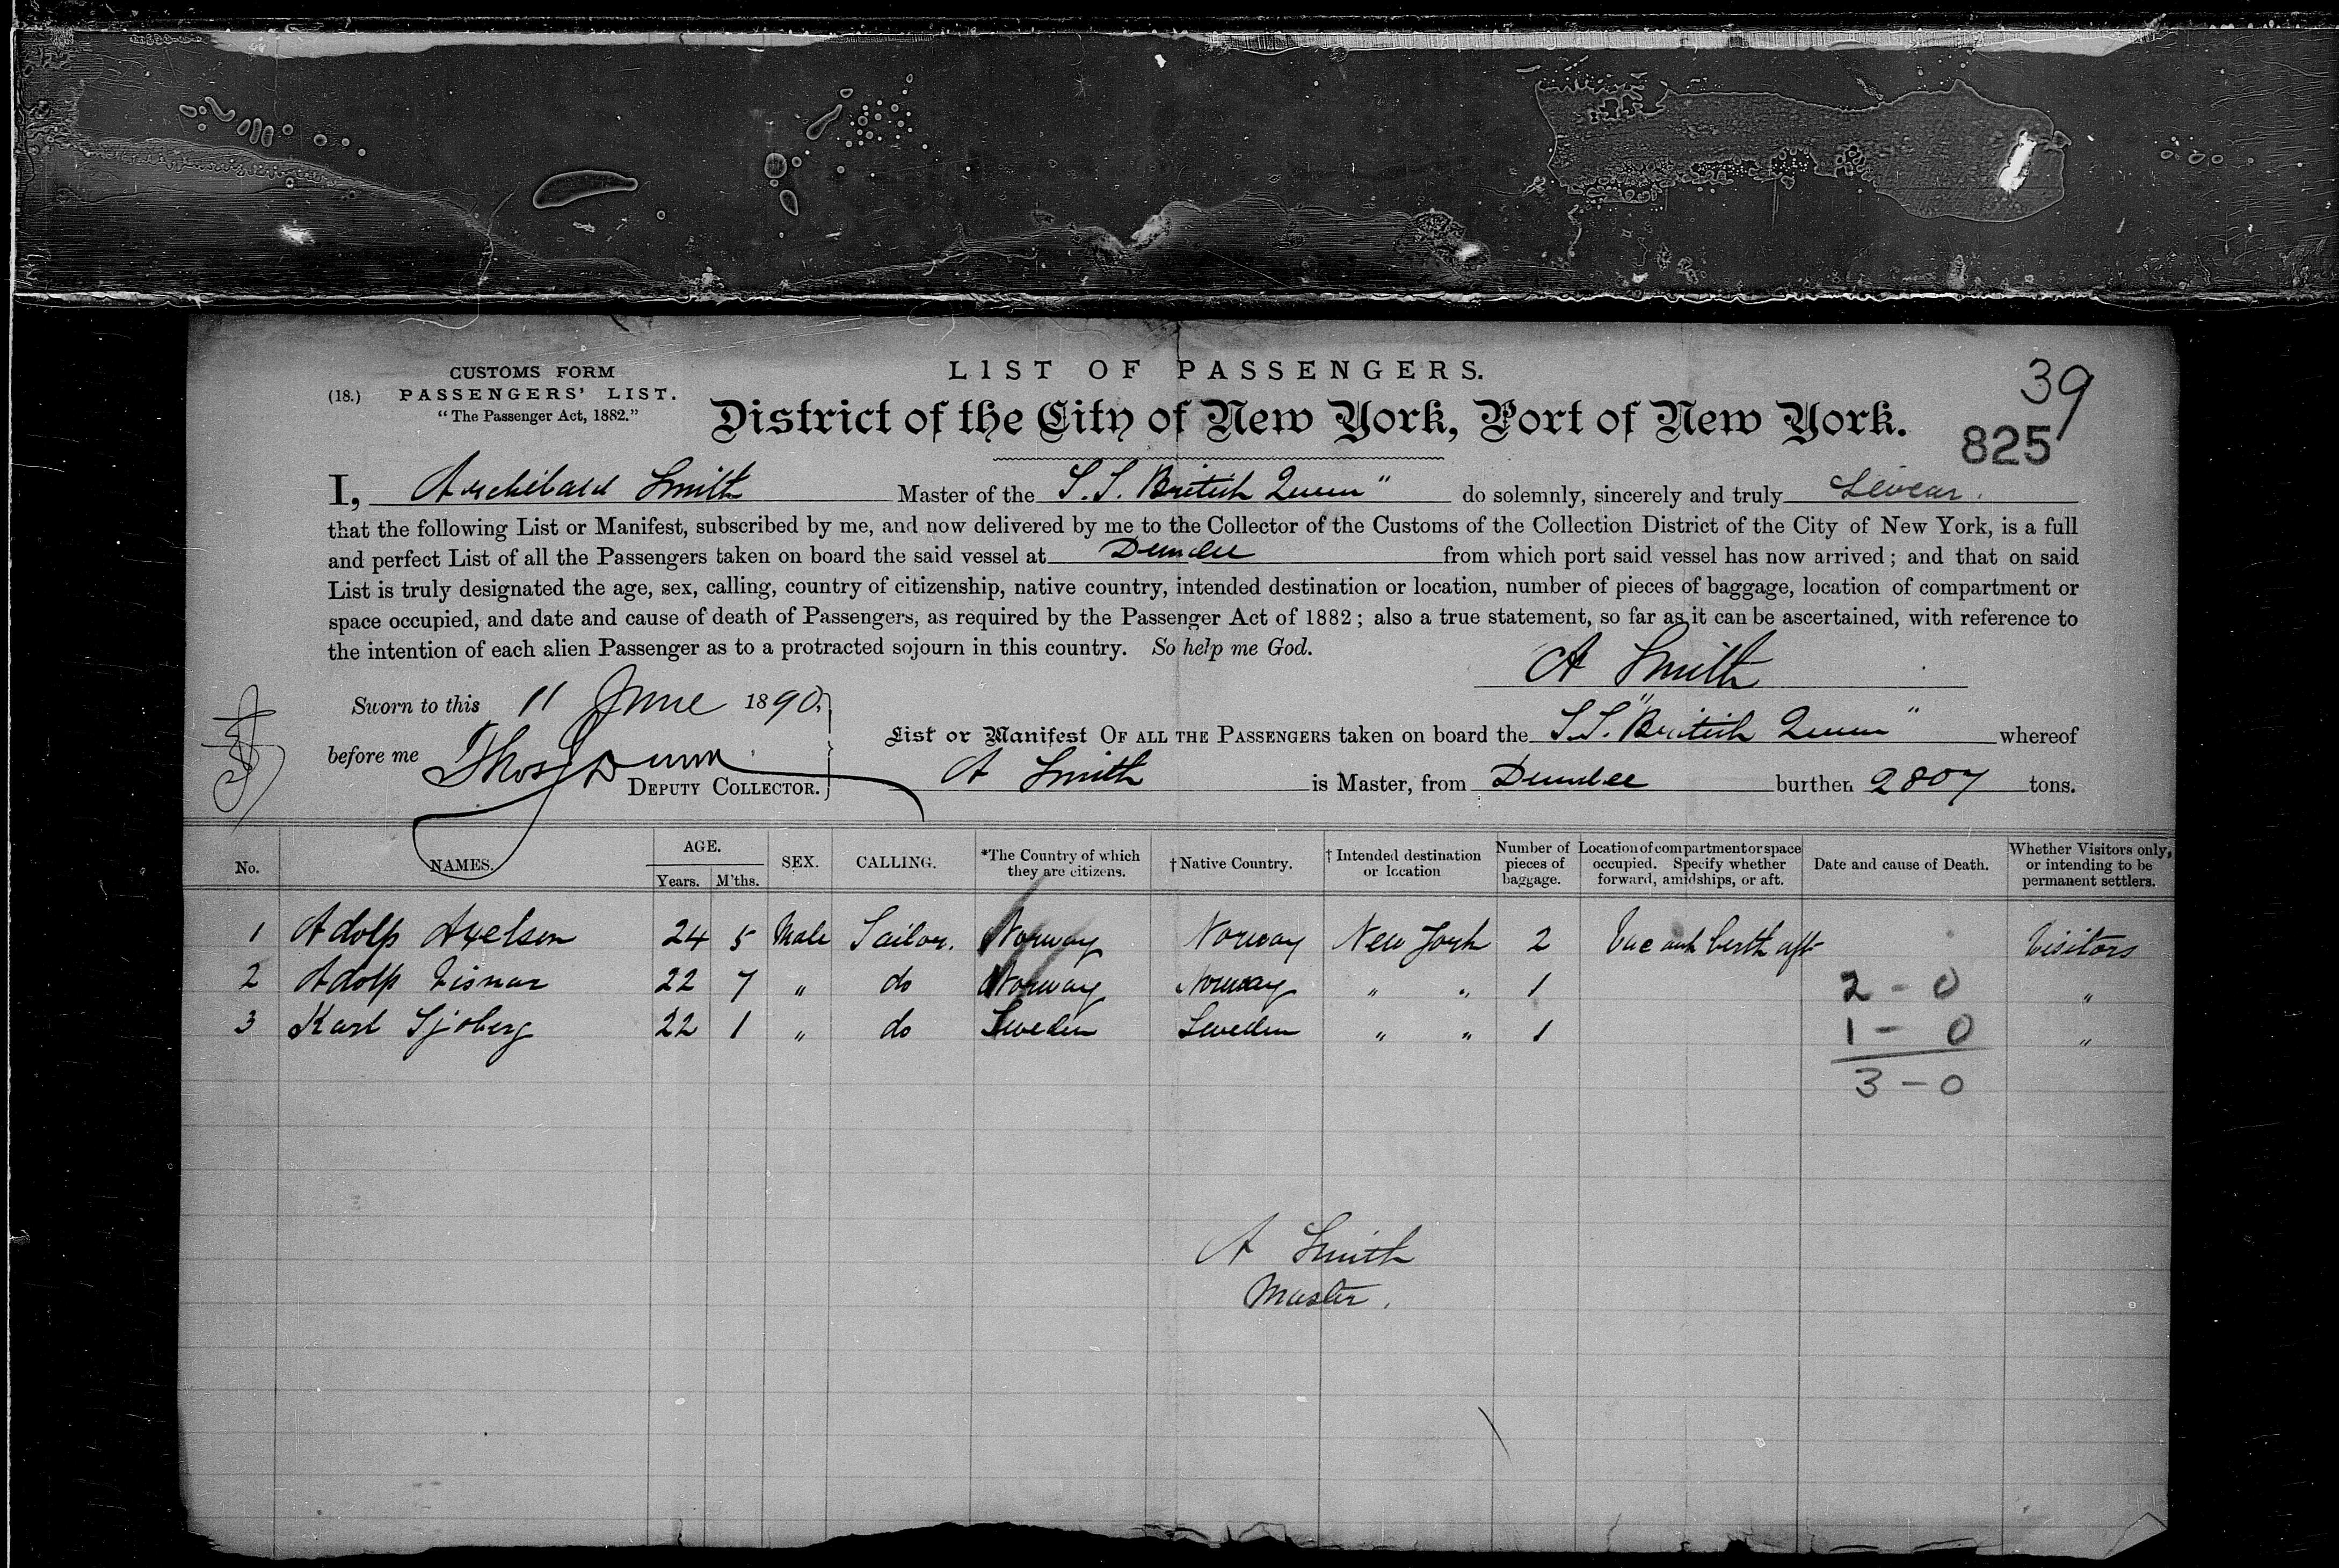 CUSTOMS FORM
(18.) PASSENGERS' LIST.
"The Passenger Act, 1882."
LIST OF PASSENGERS.
39
District of the City of New York, Port of New York.
825
I, Archibald Smith Master of the S.S. British Queen" do solemnly, sincerely and truly Swear.
that the following List or Manifest, subscribed by me, and now delivered by me to the Collector of the Customs of the Collection District of the City of New York, is a full
and perfect List of all the Passengers taken on board the said vessel at Dundee from which port said vessel has now arrived; and that on said
List is truly designated the age, sex, calling, country of citizenship, native country, intended destination or location, number of pieces of baggage, location of compartment or
space occupied, and date and cause of death of Passengers, as required by the Passenger Act of 1882; also a true statement, so far as it can be ascertained, with reference to
the intention of each alien Passenger as to a protracted sojourn in this country. So help me God.
A Smith
Sworn to this 11 June 1890,
before me Thos Dunn
DEPUTY COLLECTOR.
List or Manifest OF ALL THE PASSENGERS taken on board the S.S. "British Queen" whereof
A Smith is Master, from Dundee burthen 2807 tons.
No. NAMES. AGE. Years. M'ths. SEX. CALLING. *The Country of which they are citizens. †Native Country. †Intended destination or location Number of pieces of baggage. Location of compartment or space occupied. Specify whether forward, amidships, or aft. Date and cause of Death. Whether Visitors only, or intending to be permanent settlers.
1 Adolp Axelsen 24 5 Male Sailor. Norway Norway New York 2 berth aft Visitors
2 Adolp 22 7 " do Norway Norway " " 1 2 - 0 "
3 Karl Sjoberg 22 1 " do Sweden Sweden " " 1 1 - 0 "
3 - 0
A Smith
Master.